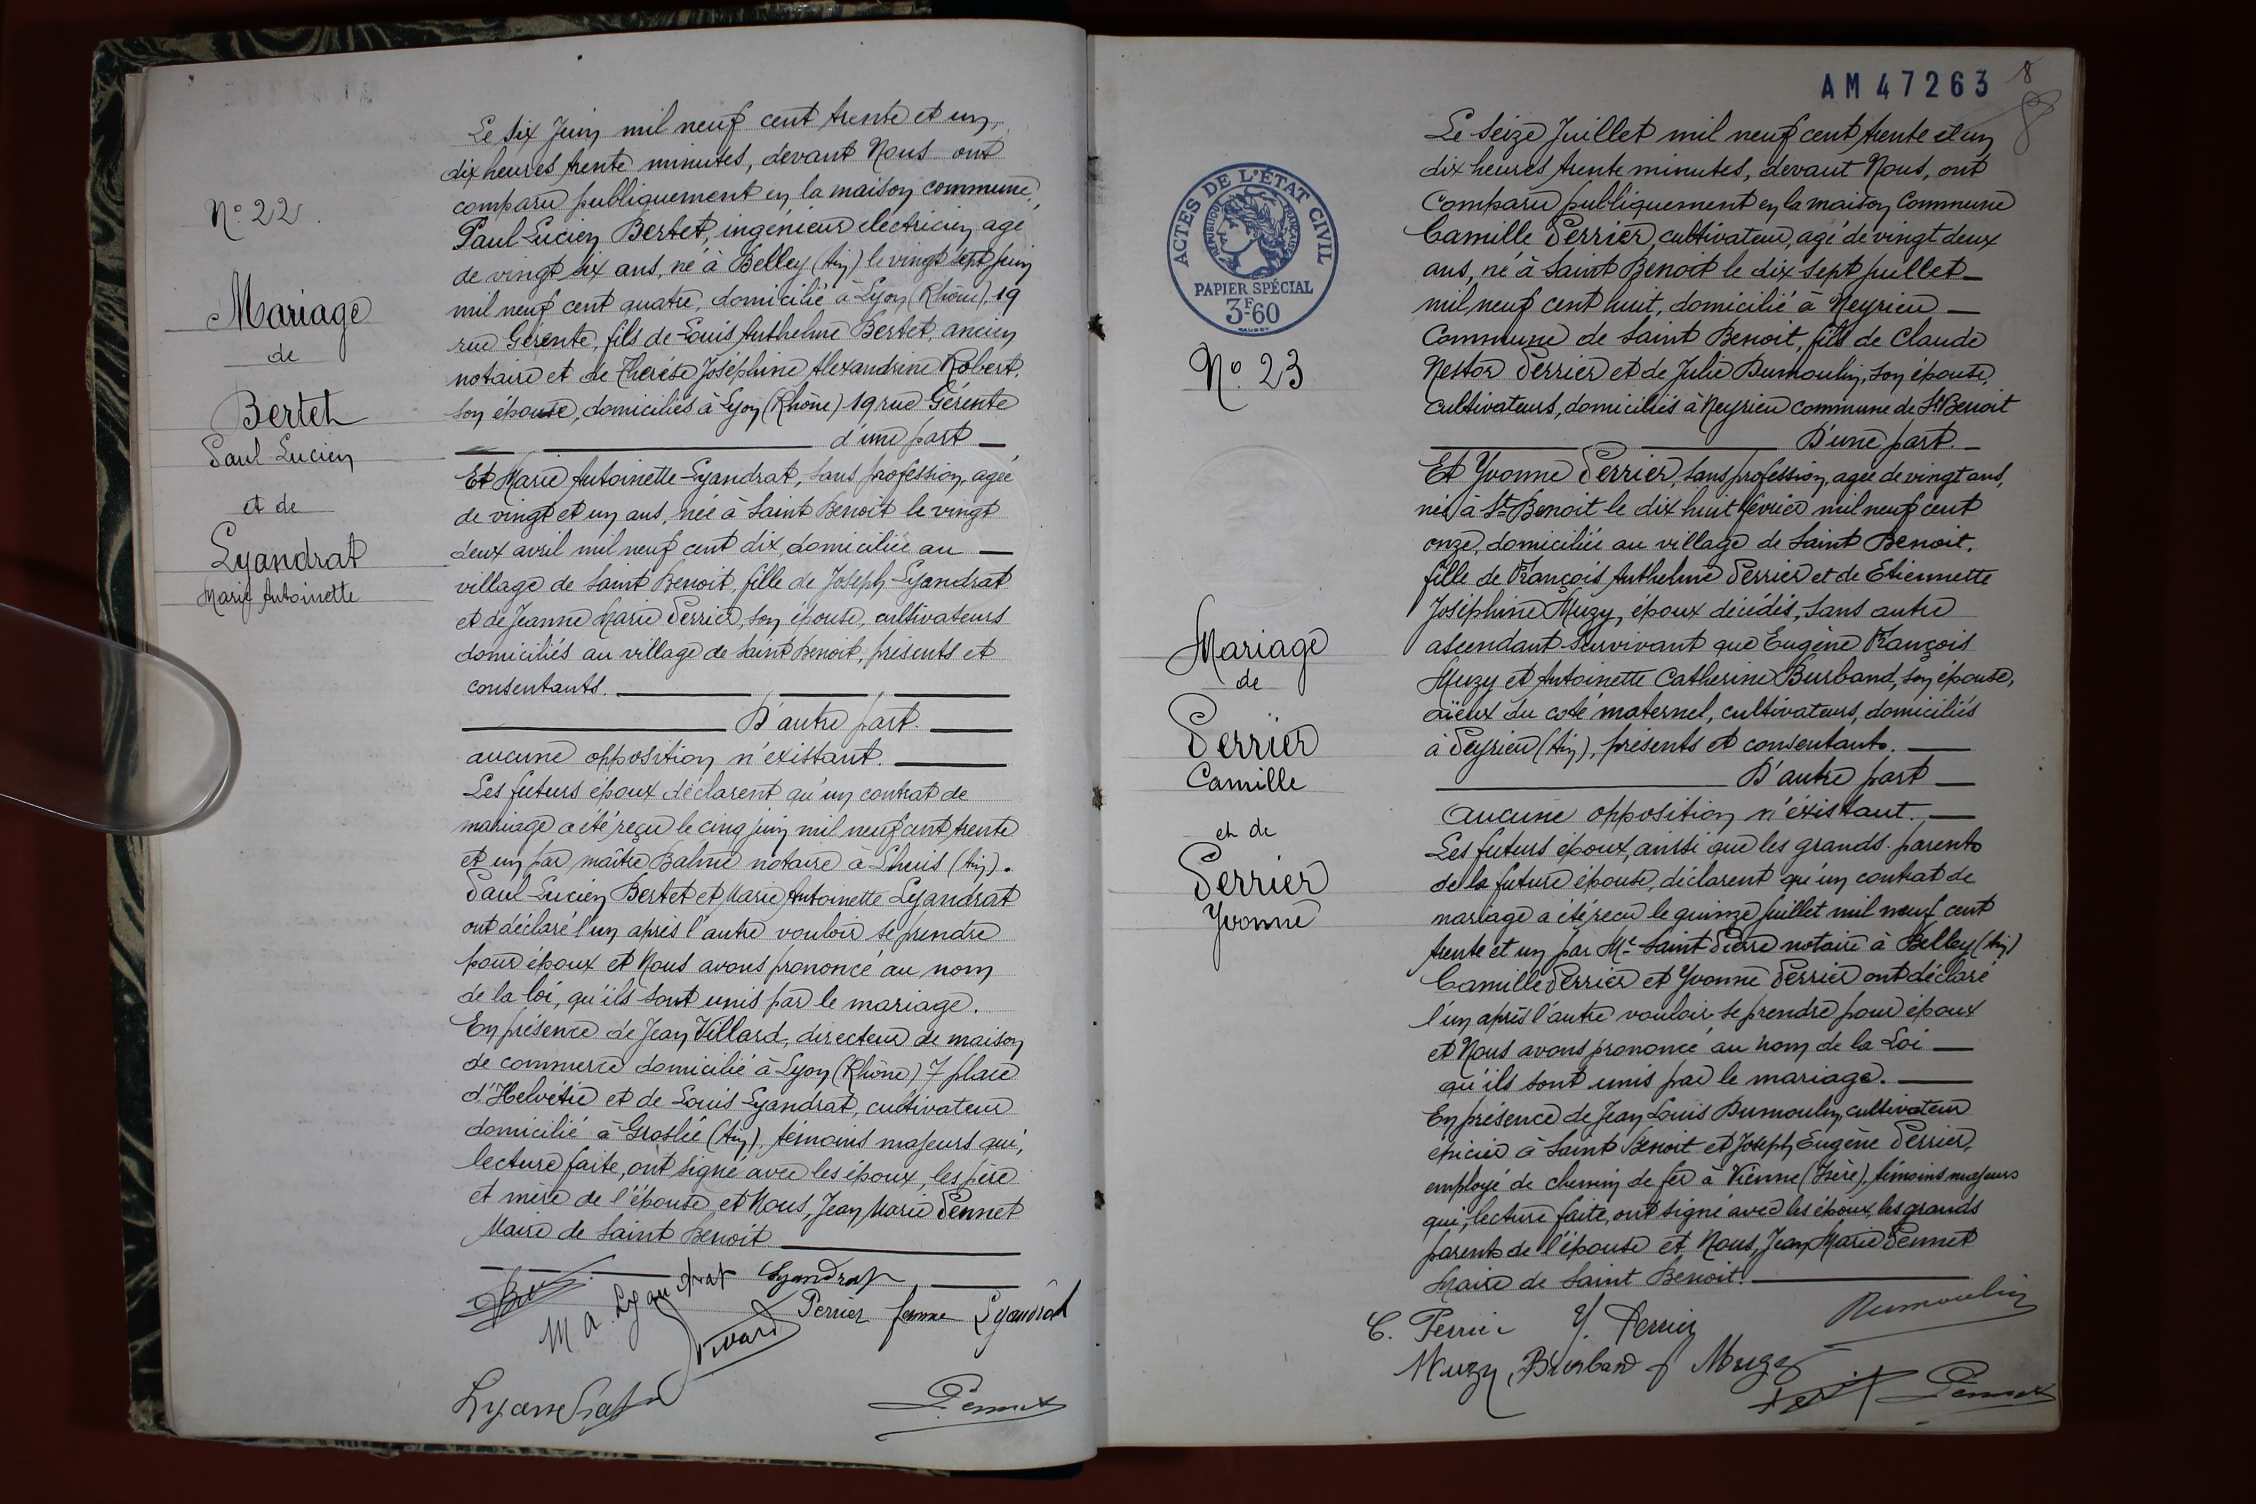 N° 22.
Mariage
de
Bertet
Paul Lucien
et de
Lyandrat
Marie Antoinette
Le Six Juin mil neuf cent trente et un,
dix heures trente minutes, devant Nous ont
comparu publiquement en la maison commune,
Paul Lucien Bertet, ingénieur électricien, agé
de vingt six ans, né à Belley (Ain) le vingt sept juin
mil neuf cent quatre, domicilié à Lyon (Rhône), 19
rue Gérente, fils de Louis Anthelme Bertet, ancien
notaire et de Thérèse Joséphine Alexandrine Robert,
son épouse, domiciliés à Lyon (Rhône) 19 rue Gérente
d'une part
Et Marie Antoinette Lyandrat, sans profession, agée
de vingt et un ans, née à Saint Benoit le vingt
deux avril mil neuf cent dix, domiciliée au
village de Saint Benoit, fille de Joseph Lyandrat
et de Jeanne Marie Perrier, son épouse, cultivateurs
domiciliés au village de Saint Benoit, présents et
consentants.
D'autre part.
aucune opposition n'existant.
Les futurs époux déclarent qu'un contrat de
mariage a été reçu le cinq juin mil neuf cent trente
et un par maître Balme notaire à Lhuis (Ain).
Paul Lucien Bertet et Marie Antoinette Lyandrat
ont déclaré l'un après l'autre vouloir se prendre
pour époux et Nous avons prononcé au nom
de la loi, qu'ils sont unis par le mariage.
En présence de Jean Villard, directeur de maison
de commerce domicilié à Lyon (Rhône) 7 place
d'Helvétie et de Louis Lyandrat, cultivateur
domicilié à Groslée (Ain), témoins majeurs qui,
lecture faite, ont signé avec les époux, les père
et mère de l'épouse, et Nous, Jean Marie Pennet
Maire de Saint Benoit
M A Lyandrat Lyandrat
Perrier femme Lyandrat
Villard
Lyandrat
Pennet
AM 47263
8
ACTES DE L'ÉTAT CIVIL
RÉPUBLIQUE FRANÇAISE
PAPIER SPÉCIAL
3F60
N° 23
Mariage
de
Perrier
Camille
et de
Perrier
Yvonne
Le Seize Juillet mil neuf cent trente et un
dix heures trente minutes, devant Nous, ont
Comparu publiquement en la maison Commune
Camille Perrier, cultivateur, agé de vingt deux
ans, né à Saint Benoit le dix sept juillet
mil neuf cent huit, domicilié à Neyrieu
Commune de Saint Benoit, fils de Claude
Nestor Perrier et de Julie Dumoulin, son épouse,
cultivateurs, domiciliés à Neyrieu commune de St Benoit
D'une part.
Et Yvonne Perrier, sans profession, agée de vingt ans,
née à St Benoit le dix huit février mil neuf cent
onze, domiciliée au village de Saint Benoit,
fille de François Anthelme Perrier et de Etiennette
Joséphine Muzy, époux décédés, sans autre
ascendant survivant que Eugène François
Muzy et Antoinette Catherine Burband, son épouse,
aïeux du coté maternel, cultivateurs, domiciliés
à Peyrieu (Ain), présents et consentants.
D'autre part
aucune opposition n'éxistant.
Les futurs époux, ainsi que les grands-parents
de la future épouse, déclarent qu'un contrat de
mariage a été reçu le quinze juillet mil neuf cent
trente et un par Me Saint Pierre notaire à Belley (Ain)
Camille Perrier et Yvonne Perrier ont déclaré
l'un après l'autre vouloir se prendre pour époux
et Nous avons prononcé au nom de la Loi
qu'ils sont unis par le mariage.
En présence de Jean Louis Dumoulin, cultivateur
épicier à Saint Benoit et Joseph Eugène Perrier,
employé de chemin de fer à Vienne (Isère), témoins majeurs
qui, lecture faite, ont signé avec les époux, les grands
parents de l'épouse et Nous, Jean Marie Pennet
Maire de Saint Benoit.
C. Perrier Y. Perrier Dumoulin
Muzy, Burband f Muzy
Pennet